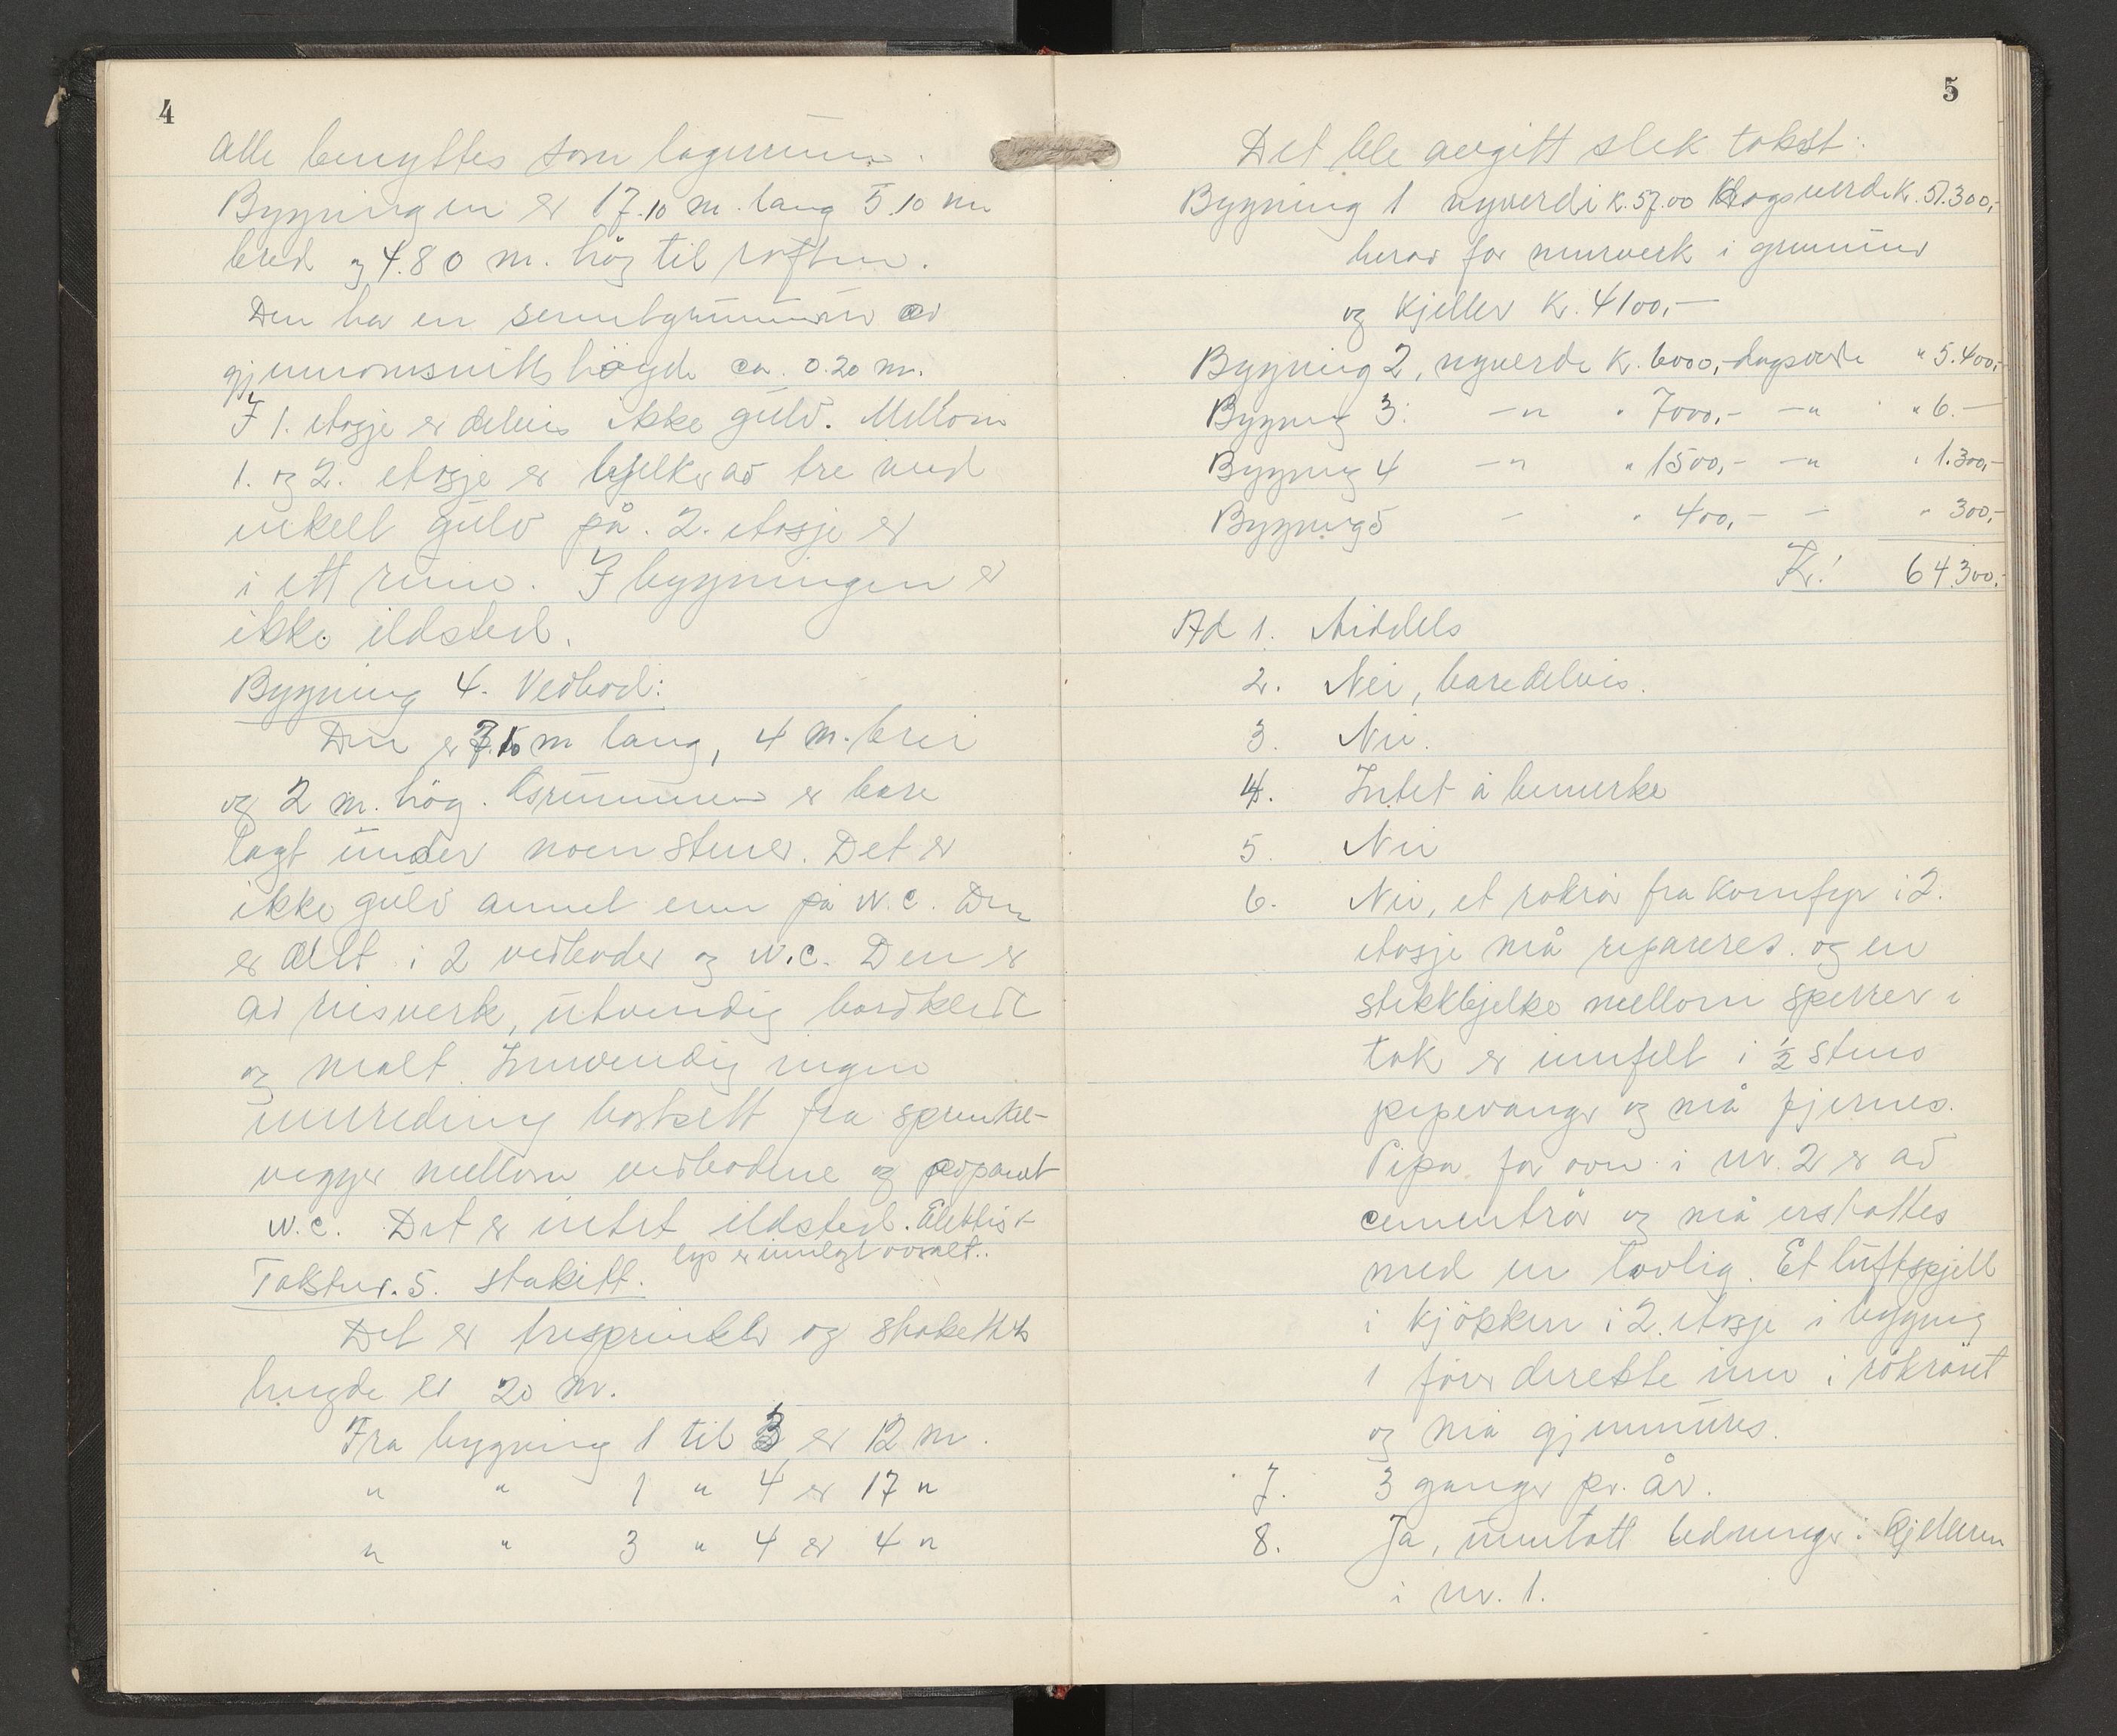 4
alle benyttes som lagerrum.
Bygningen er 17.10 m. lang 5.10 m
bred og 4.80 m. høg til røsten.
Den har en sementgrunnmur av
gjennomsnitts høgde ca. 0.20 m.
I 1. etasje er delvis ikke gulv. Mellom
1. og 2. etasje er bjelker av tre med
enkelt gulv på. 2. etasje er
i ett rum. I bygningen er
ikke ildsted.
Bygning 4. Vedbod:
Den er m lang, 4 m. brei
og 2 m. høg. er bare
lagt under noen stener. Det er
ikke gulv annet enn på W.C. Den
er delt i 2 vedboder og W.C. Den er
av reisverk, utvendig bordkledt
og malt. Innvendig ingen
innreding bortsett fra sprinkel-
vegger mellom vedbodene og panel
W.C. Det er intet ildsted. Elektrisk
lys er innlagt overalt.
Takstnr. 5. stakitt.
Det er tresprinkler og stakittets
lengde er 20 m.
Fra bygning 1 til 3 er 12 m.
" " 1 " 4 er 17 "
" " 3 " 4 er 4 "
5
Det ble avgitt slik takst:
Bygning 1 nyverdi k. 57.00 dagsverdi K. 51.300,-
herav for murverk i grunnmur
og kjeller K. 4100,-
Bygning 2, nyverdi K. 6000,- dagsverdi " 5.400,-
Bygning 3: -"- " 7000,- -"- " 6.-
Bygning 4 -"- " 1500,- -"- " 1.300,-
Bygning 5 - " 400,- - " 300,-
Kr. 64.300,-
Ad 1. Middels
2. Nei, bare delvis.
3. Nei.
4. Intet å bemerke
5. Nei
6. Nei, et røkrør fra komfyr i 2.
etasje må repareres. og en
stikkbjelke mellom sperrer i
tak er innfelt i ½ stens
pipevange og må fjernes.
Pipa for ovn i nr. 2 er av
cementrør og må erstattes
med en lovlig. Et luftspjell
i kjøkken i 2. etasje i bygning
1 fører direkte inn i røkrøret
og må gjenmures.
7. 3 ganger pr. år.
8. Ja, unntatt ledninger i kjelleren
i nr. 1.